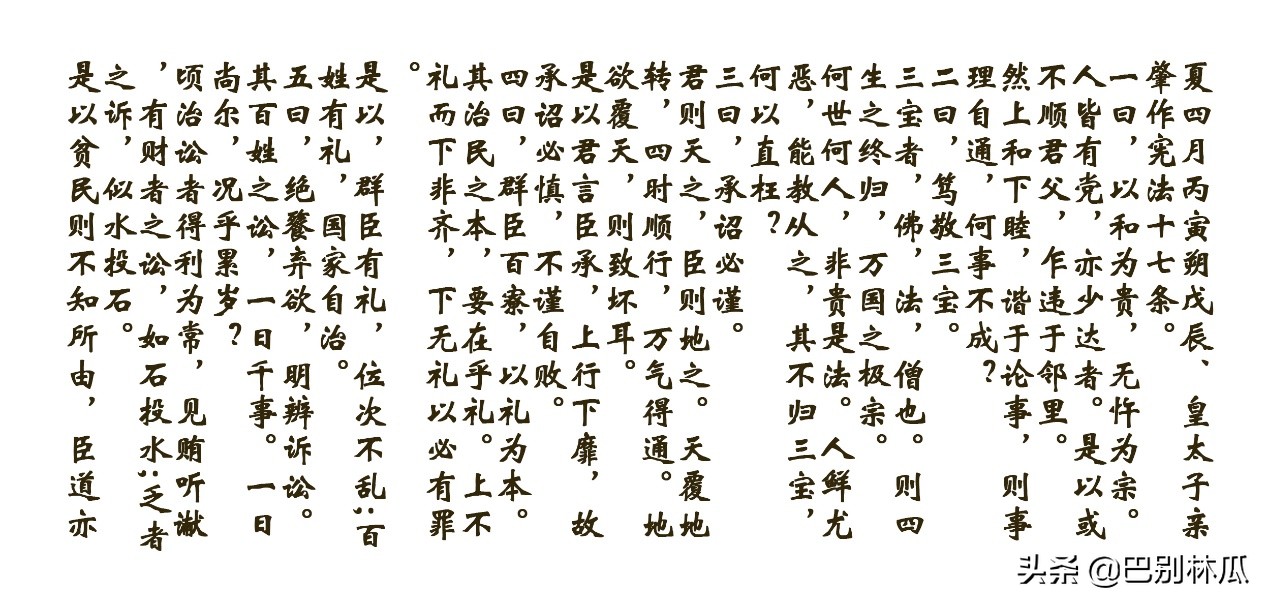 夏四月丙寅朔戊辰、皇太子亲
肇作宪法十七条。
一曰，以和为贵，无忤为宗。
人皆有党，亦少达者。是以或
不顺君父，乍违于邻里。
然上和下睦，谐于论事，则事
理自通，何事不成？
二曰，笃敬三宝。
三宝者，佛，法，僧也。则四
生之终归，万国之极宗。
何世何人，非贵是法。人鲜尤
恶，能教从之，其不归三宝，
何以直枉？
三曰，承诏必谨。
君则天之，臣则地之。天覆地
转，四时顺行，万气得通。地
欲覆天，则致坏耳。
是以君言臣承，上行下靡，故
承诏必慎，不谨自败。
四曰，群臣百寮，以礼为本。
其治民之本，要在乎礼。上不
礼而下非齐，下无礼以必有罪
。
是以，群臣有礼，位次不乱；百
姓有礼，国家自治。
五曰，绝餮弃欲，明辨诉讼。
其百姓之讼，一日千事。一日
尚尔，况乎累岁？
顷治讼者得利为常，见贿听谳
，有财者之讼，如石投水；乏者
之诉，似水投石。
是以贫民则不知所由，臣道亦
头条 @巴别林瓜